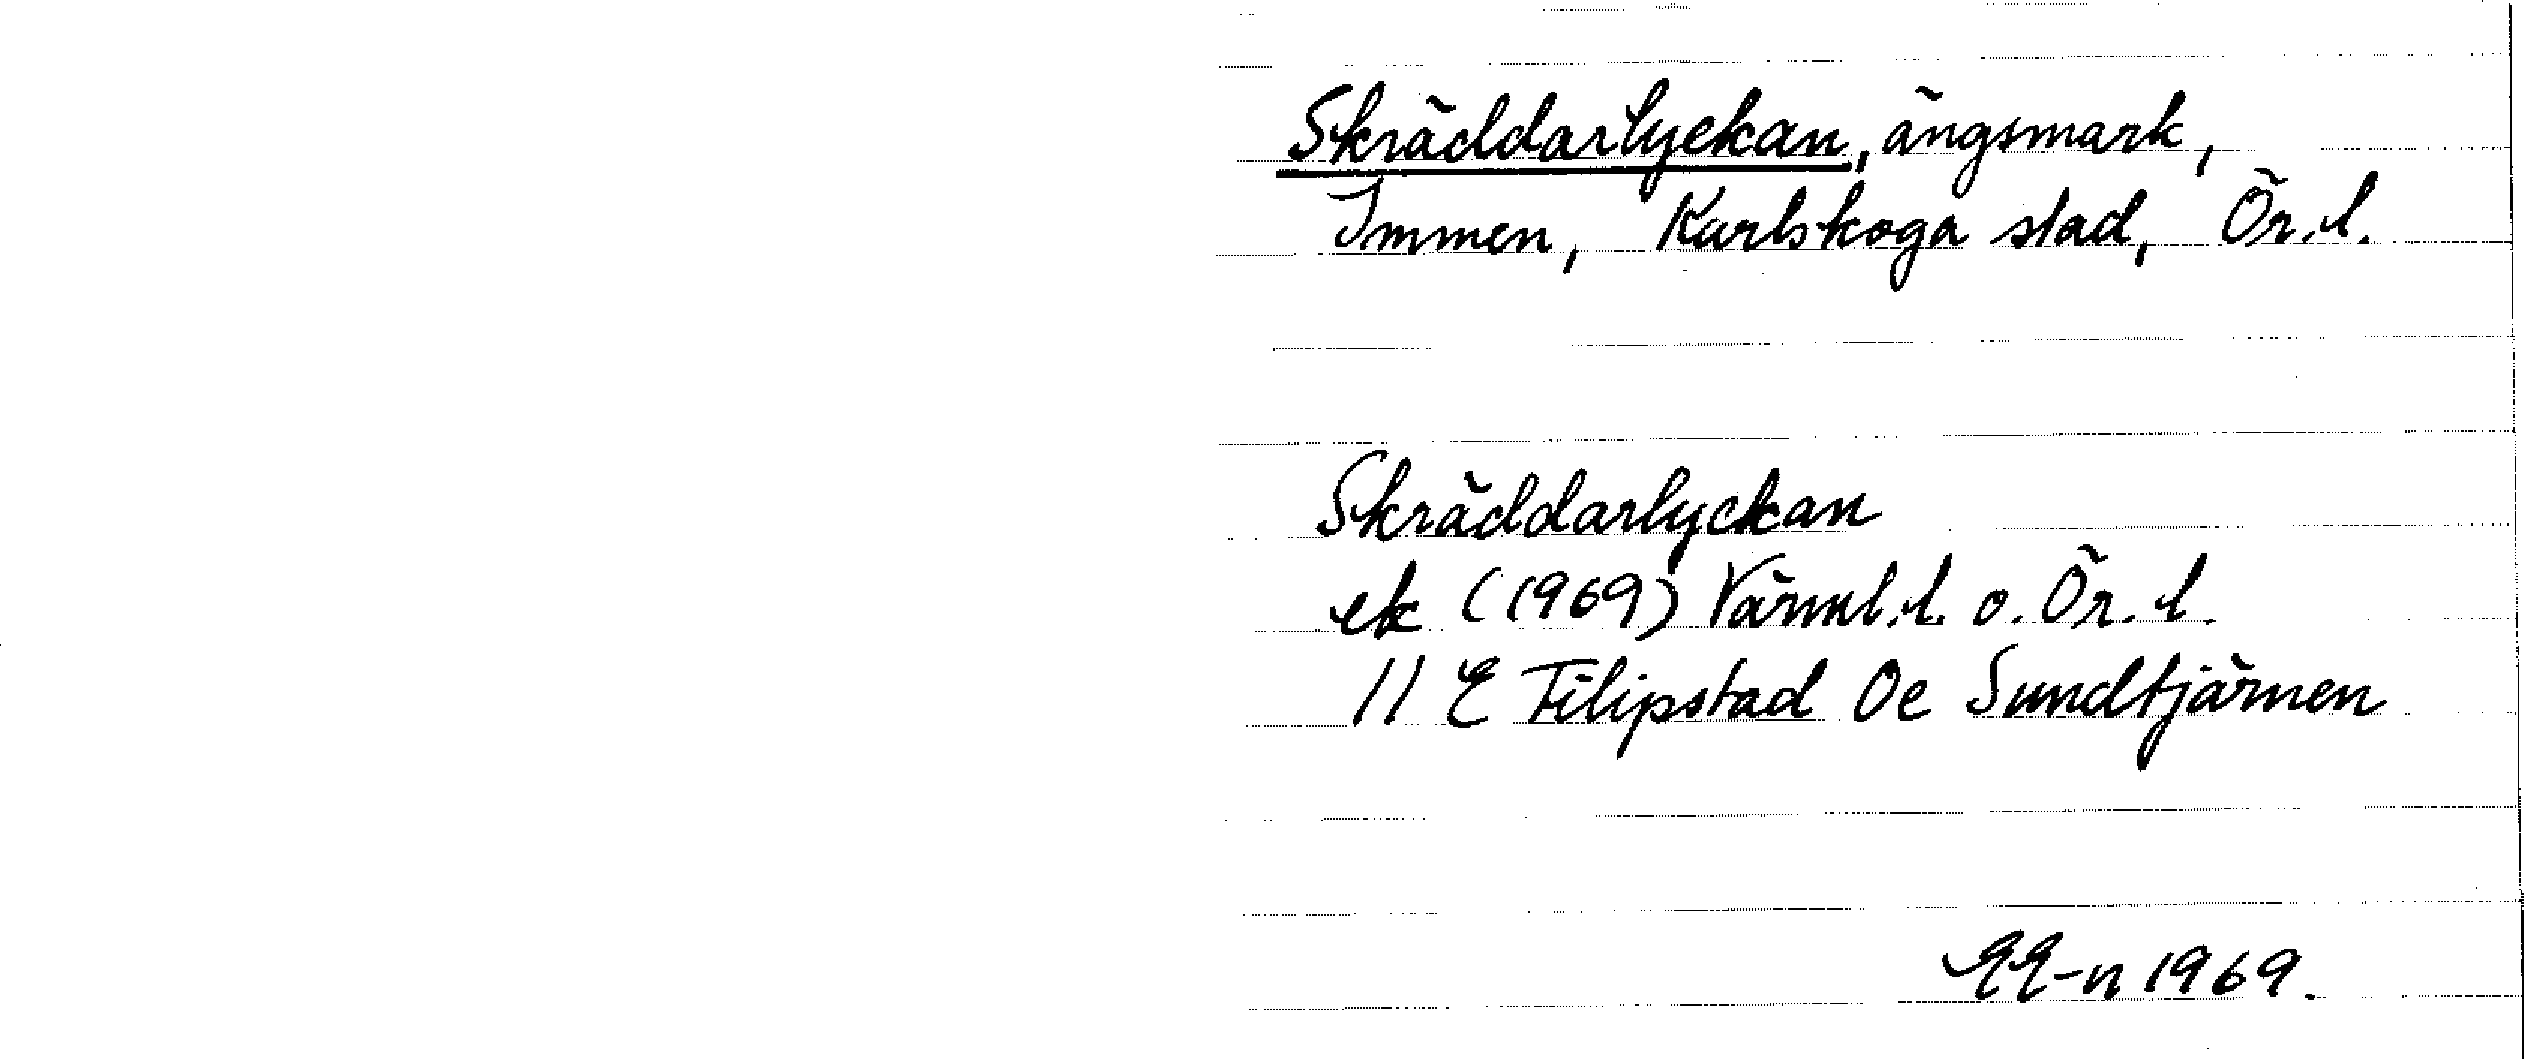 Skräddarlyckan, ängsmark,
Immen, Karlskoga stad, Ör.l.
Skräddarlyckan
ek (1969) Värml.l. o. Ör.l.
11 E Filipstad 0e Sundtjärnen
EE-n 1969.